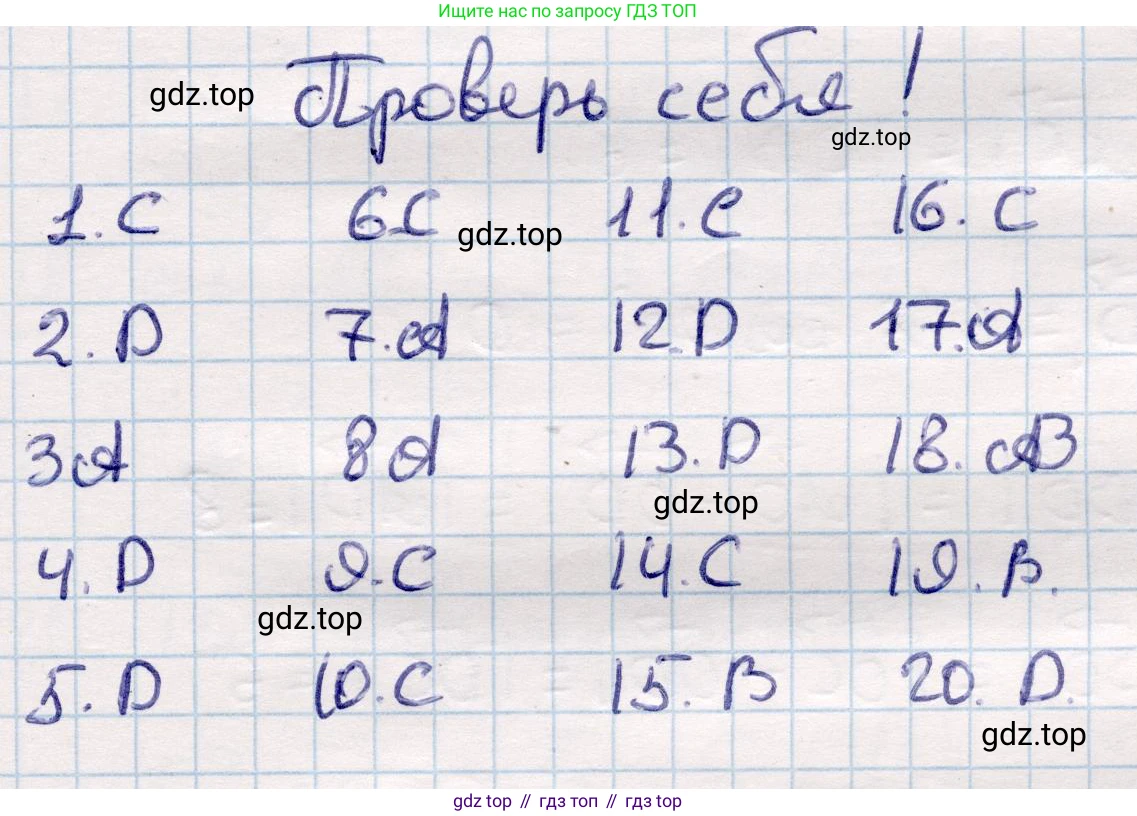 Ищите нас по запросу ГДЗ ТОП
Проверь себя!
gdz.top
gdz.top
1. C 6 C 11. C 16. C
gdz.top
2. D 7. A 12. D 17. A
3 A 8 A 13. D 18. AB
gdz.top
4. D 9. C 14. C 19. B.
gdz.top
5. D 10. C 15. B 20. D.
gdz.top
gdz top // гдз топ // гдз top